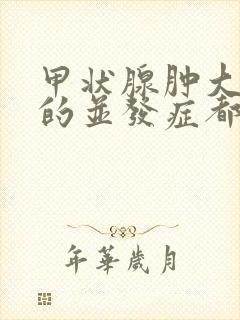 甲状腺肿大
的並發症都
年華歲月